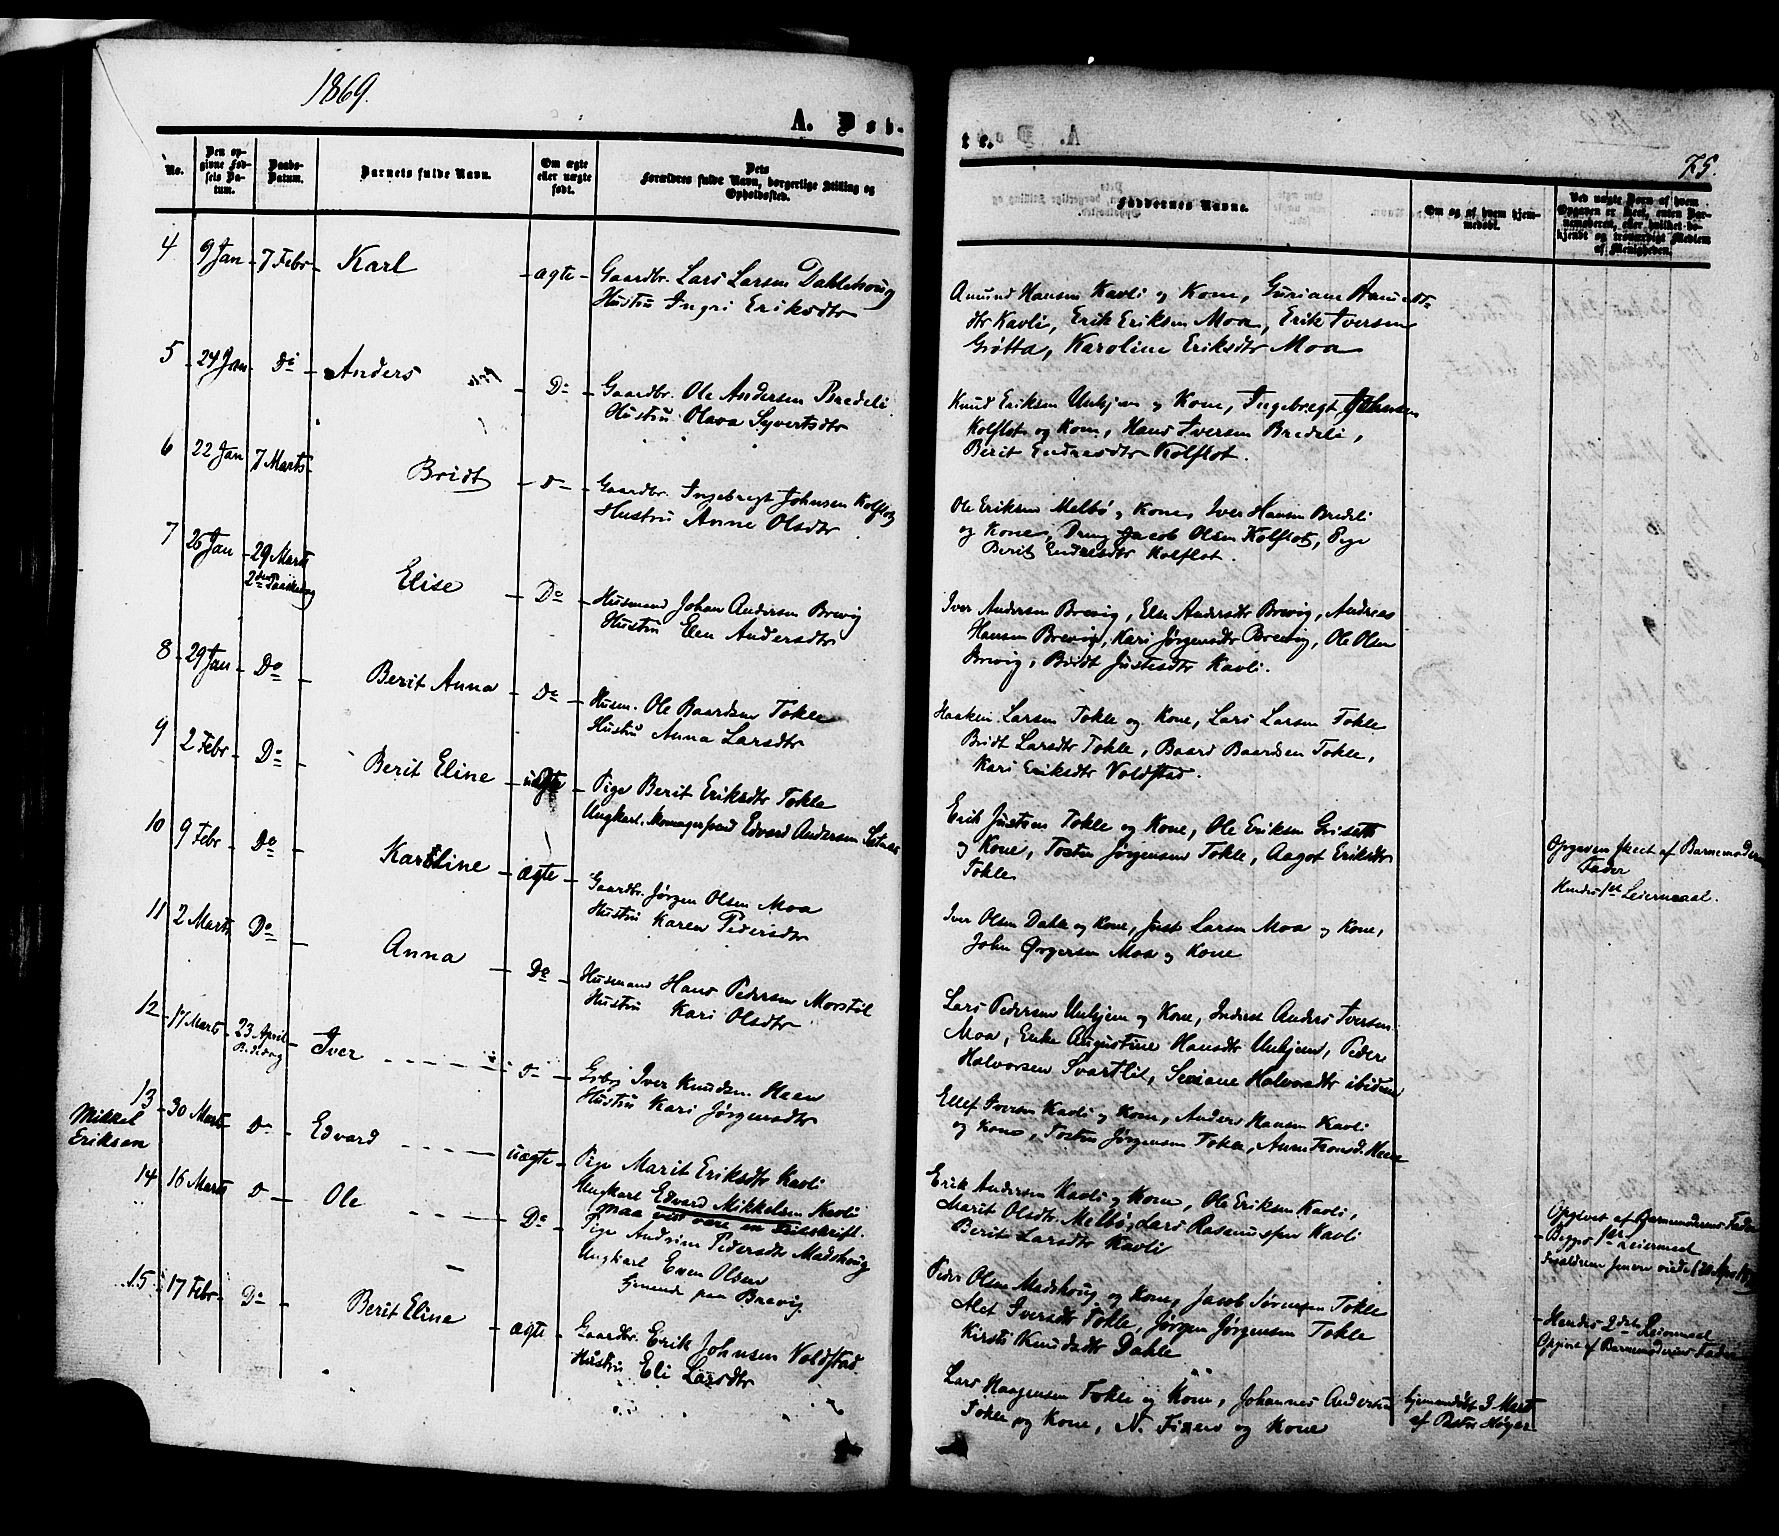 1869.
A. Døb-
No.
Den op-
givne Fød-
sels Da-
tum.
Daabs-
Datum.
Barnets fulde Navn.
Om ægte
eller uægte
født.
Dets
Forældres fulde Navn, borgerlige Stilling og
Opholdssted.
4 9 Jan 7 Febr Karl ægte Gaardbr. Lars Larsen Dahlehoug
Hustru Ingri Eriksdtr
5 24 Jan Do Anders Do Gaardbr. Ole Andersen Bredeli
Hustru Olava Syvertsdtr
6 22 Jan 7 Marts Bridt Do Gaardbr. Ingebregt Johnsen Kolflot
Hustru Anne Olsdtr
7 26 Jan 29 Marts
2den Paaskedag Elise Do Husmand Johan Andersen Brevig
Hustru Elen Andersdtr
8 29 Jan Do Berit Anna Do Husm. Ole Baardsen Tokle
Hustru Anna Larsdtr
9 2 Febr Do Berit Eline uægte Pige Berit Eriksdtr Tokle
Ungkarl Edvard Andersen
10 9 Febr Do Karoline ægte Gaardbr. Jørgen Olsen Moa
Hustru Karen Pedersdtr
11 2 Marts Do Anna Do Husmand Hans Pedersen Morstøl
Hustru Kari Olsdtr
12 17 Marts 23 April
Bededag Iver Do Iver Knudsen Heen
Hustru Kari Jørgensdtr
13 30 Marts Do Edvard uægte Pige Marit Eriksdtr Kavli
Mikkel
Eriksen
Ungkarl Edvard Mikkelsen Kavli
maa vist være en Feilskrift.
14 16 Marts D Ole Do Pige Andrine Pedersdtr Madshoug
Ungkarl Even Olsen
tjenende paa Brevig
15 17 Febr Do Berit Eline ægte Gaardbr. Erik Johnsen Voldstad
Hustru Eli Larsdtr
te.
75.
Faddernes Navne.
Om og af hvem hjem-
medøbt.
Ved uægte Børn af hvem
Opgaven er skeet, enten Bar-
nemoderen, eller hvilket be-
kjendt og troværdigt Medlem
af Menigheden.
Amund Hansen Kavli og Kone, Guriane Amunds-
dtr Kavli, Erik Eriksen Moa, Erik Iversen
Grøtta, Karoline Eriksdtr Moa
Knud Eriksen Unhjem og Kone, Ingebregt Johnsen
Kolflot og Kone, Hans Iversen Bredeli,
Berit Endresdtr Kolflot.
Ole Eriksen Melbø og Kone, Iver Hansen Bredeli
og Kone, Dreng Jacob Olsen Kolflot, Pige
Berit Endresdtr Kolflot.
Iver Andersen Brevig, Else Andersdtr Brevig, Andreas
Hansen Brevig, Kari Jørgensdtr Brevig, Ole Olsen
Brevig, Bridt Justesdtr Kavli.
Haaken Larsen Tokle og Kone, Lars Larsen Tokle
Bridt Larsdtr Tokle, Baard Baardsen Tokle,
Kari Eriksdtr Voldstad.
Erik Justsen Tokle og Kone, Ole Eriksen Griseth
og Kone, Tosten Jørgensen Tokle, Aagot Eriksdtr
Tokle
Opgaven skeet af Barnemoderens
Fader
Hendes 1ste Leiermaal.
Iver Olsen Dahle og Kone, Just Larsen Moa og Kone,
John Ørgersen Moa og Kone
Lars Pedersen Unhjem og Kone, Inderst Anders Iversen
Moa, Enke Augustine Hansdtr Unhjem, Peder
Halvorsen Svartlit, Seviane Halvorsdtr ibidem
Ellef Iversen Kavli og Kone, Anders Hansen Kavli
og Kone, Tosten Jørgensen Tokle, Anne Tronsd. Heen
Erik Andersen Kavli og Kone, Ole Eriksen Kavli,
Marit Olsdtr Melbø, Lars Rasmussen Kavli
Berit Larsdtr Kavli
Opgivet af Barnemoderens Fader
Begges 1ste Leiermaal
Peder Olsen Madshoug og Kone, Jacob Sørensen Tokle
Alet Iversdtr Tokle, Jørgen Jørgensen Tokle
Kirsti Knudsdtr Dahle
Hendes 2det Leiermaal
Opgivet af Barnemoderens Fader
Lars Haagensen Tokle og Kone, Johannes Andersen
Tokle og Kone, N. Fixen og Kone
hjemmedøbt 3 Marts
af Pastor Høyer